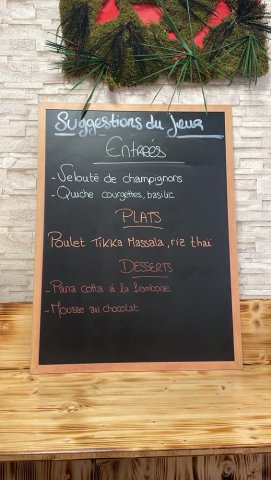 Suggestions du jeur
Entrées
- Velouté de champignons
- Quiche courgettes, basilic
PLATS
Poulet Tikka Massala, riz thaï
DESSERTS
- Pana cotta à la framboise
- Mousse au chocolat